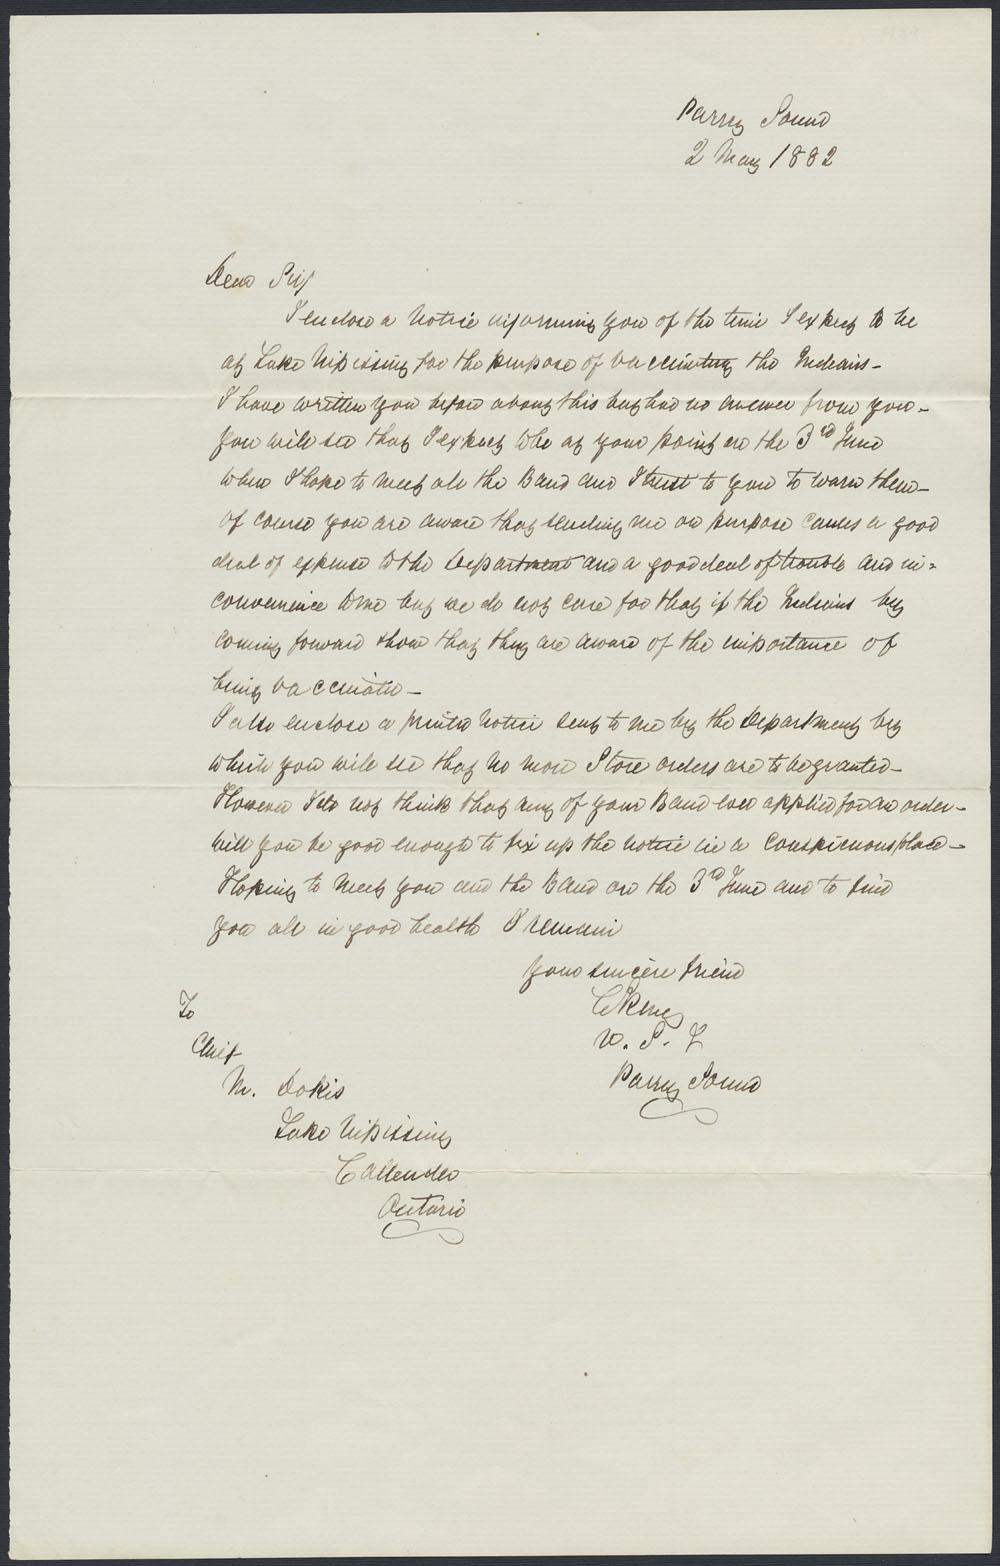 Parry Sound
2 May 1882
Dear Sir/
I enclose a Notice informing you of the time I expect to be
at Lake Nipissing for the purpose of vaccinating the Indians -
I have written you before about this but had no answer from you -
You will see that I expect to be at your point on the 3rd June
when I hope to meet all the Band and I trust to you to warn them -
of course you are aware that sending me on purpose causes a good
deal of expense to the Department and a good deal of trouble and in=
convenience to me but we do not care for that if the Indians by
coming forward show that they are aware of the importance of
being vaccinated -
I also enclose a printed Notice sent to me by the Department by
which you will see that no more Store orders are to be granted -
However I do not think that any of your Band ever applied for an order -
will you be good enough to fix up the notice in a conspicuous place -
Hoping to meet you and the Band on the 3rd June and to find
you all in good health I remain
Your sincere friend
To
Chief
M. Dokis
Lake Nipissing
Callender
Ontario
V. S. I.
Parry Sound